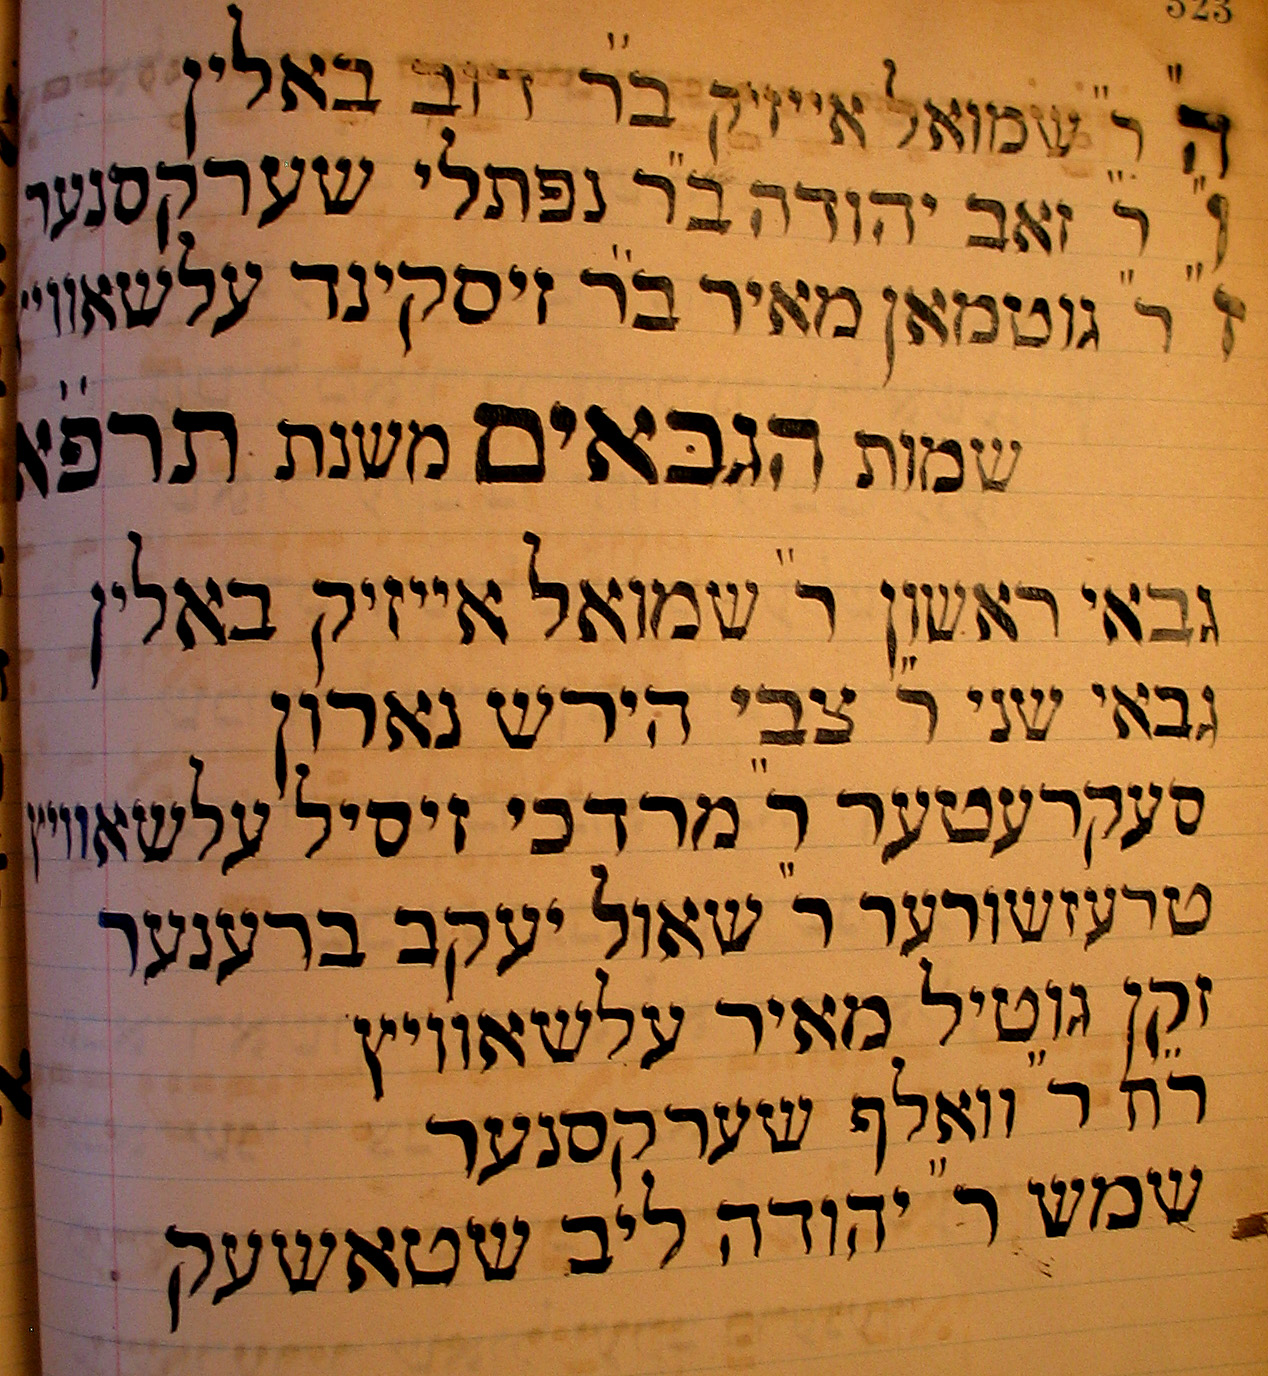 523
ה" ר" שמואל אייזיק ב"ר דוב באלין
ו" ר" זאב יהודה ב"ר נפתלי שערקסנער
ז" ר" גוטמאן מאיר ב"ר זיסקינד עלשאוויי
שמות הגבאים משנת תרפ"א
גבאי ראשון ר" שמואל אייזיק באלין
גבאי שני ר" צבי הירש נארון
סעקרעטער ר" מרדכי זיסיל עלשאוויץ
טרעזשורער ר" שאול יעקב ברענער
זקן גוטיל מאיר עלשאוויץ
ר"ח ר" וואלף שערקסנער
שמש ר" יהודה ליב שטאשעק